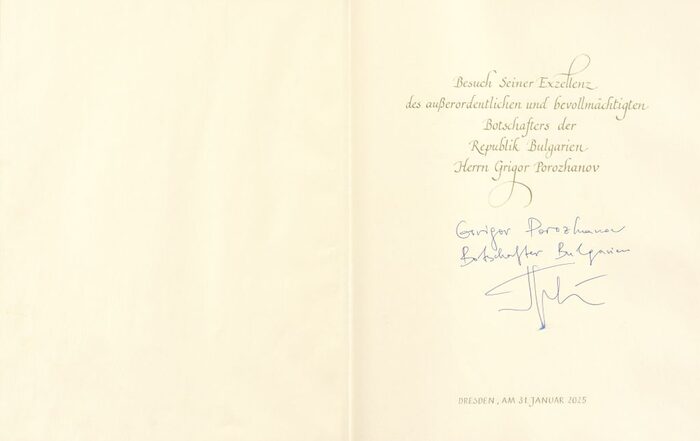 Besuch Seiner Exzellenz
des außerordentlichen und bevollmächtigten
Botschafters der
Republik Bulgarien
Herrn Grigor Porozhanov
Grigor Porozhanov
Botschafter Bulgarien
DRESDEN, AM 31. JANUAR 2025